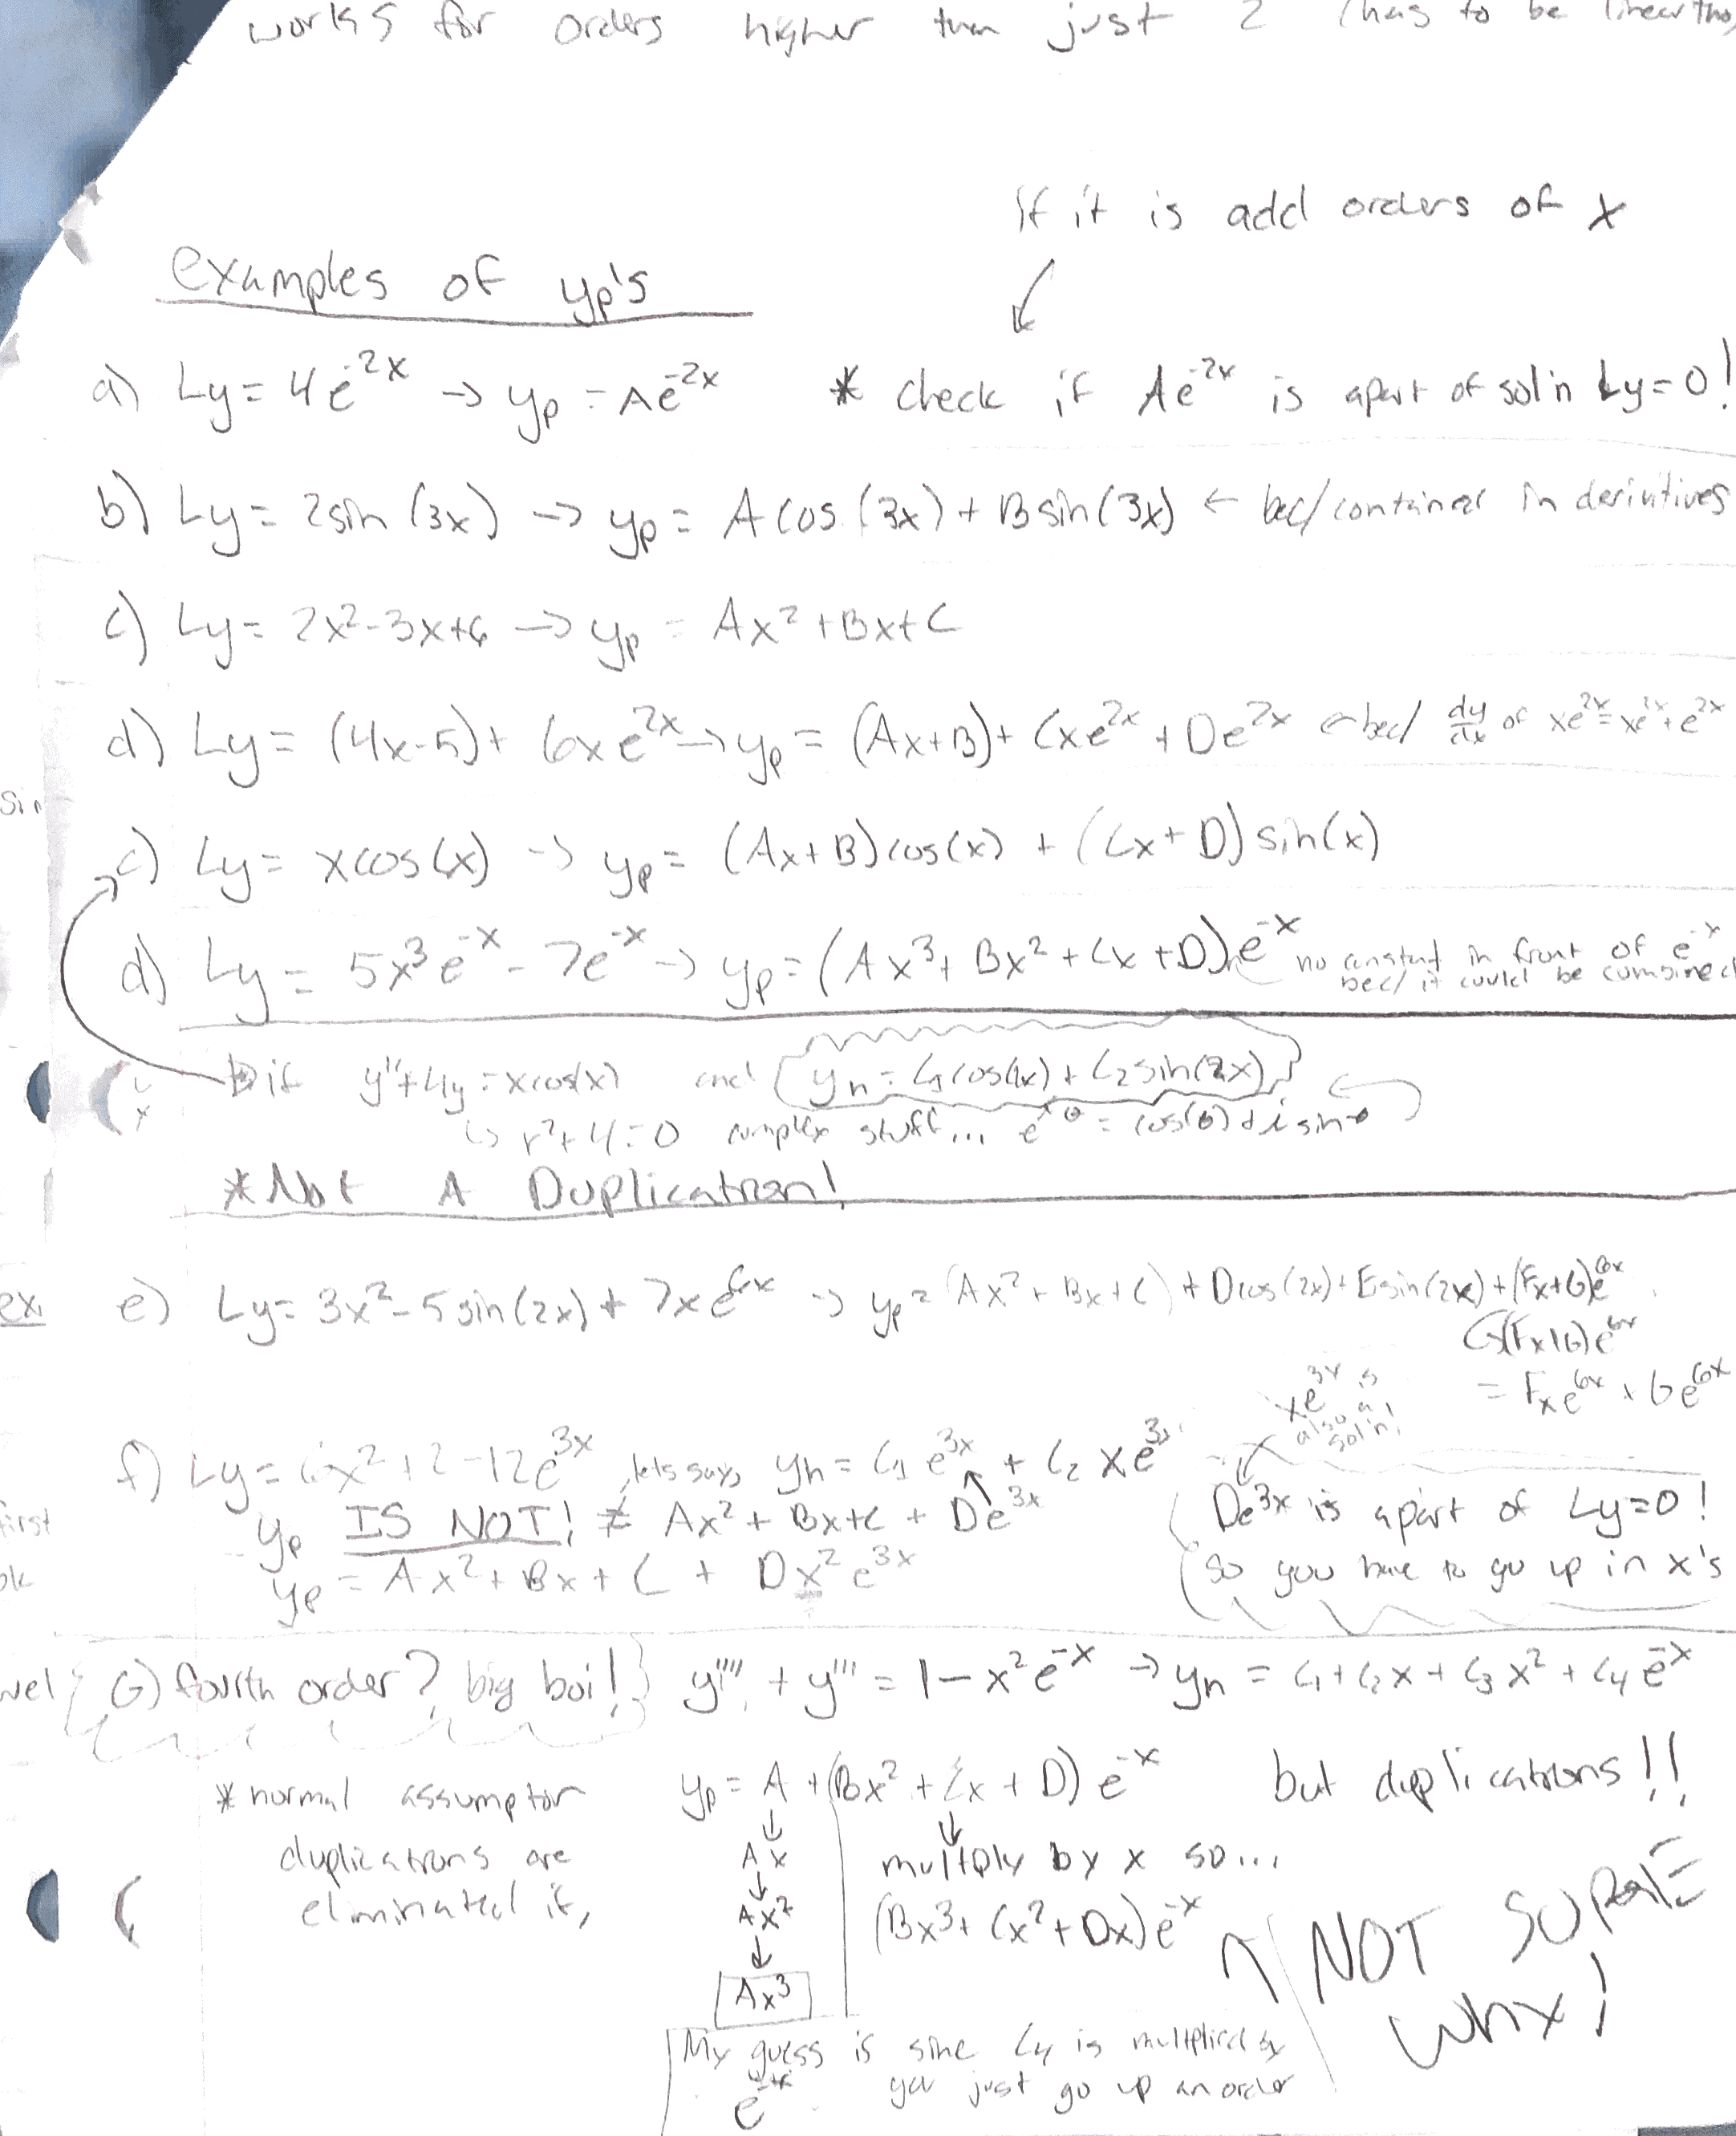 works for orders higher than just 2 (has to be linear tho,
If it is add orders of x
examples of yp's
a) Ly = 4e^-2x → yp = Ae^-2x * check if Ae^-2x is apart of sol'n Ly=0!
b) Ly = 2sin(3x) → yp = Acos(3x) + Bsin(3x) ← bec/ contained in derivitives
c) Ly = 2x²-3x+6 → yp = Ax²+Bx+C
d) Ly = (4x-5)+ 6xe^2x → yp = (Ax+B)+ Cxe^2x + De^2x ← bec/ dy/dx of xe^2x = xe^2x + e^2x
Sin
c) Ly = xcos(x) → yp = (Ax+B)cos(x) + (Cx+D)sin(x)
d) Ly = 5x³e^-x - 7e^-x → yp = (Ax³+Bx²+Cx+D)e^-x no constant in front of e^-x
bec/ it could be combined
if y''+4y = xcos(x) and yn = C1cos(2x) + C2sin(2x)
↳ r²+4=0 complex stuff... e^iθ = cos(θ)+isinθ
*Not A Duplication!
ex. e) Ly = 3x²-5sin(2x)+7xe^6x → yp = (Ax²+Bx+C)+Dcos(2x)+Esin(2x)+(Fx+G)e^6x
(Fx+G)e^6x
= Fxe^6x + Ge^6x
xe^3x is
also a
sol'n!
f) Ly = 6x²+2-12e^3x, lets say, yh = C1e^3x + C2xe^3x
yp IS NOT! ≠ Ax²+Bx+C+De^3x
De^3x is apart of Ly=0!
first
yp = Ax²+Bx+C + Dx²e^3x
so you have to go up in x's
G) fourth order? big boi! y''''+y''' = 1-x²e^-x → yn = C1+C2x+C3x²+C4e^-x
yp = A+(Bx²+Cx+D)e^-x but duplications!!
*normal assumption
↓ ↓
duplications are
Ax multiply by x so...
eliminated if,
↓
Ax² (Bx³+Cx²+Dx)e^-x
↓
Ax³
NOT SUPER
WHY!
My guess is sine C4 is multiplied by
e^-x you just go up an order